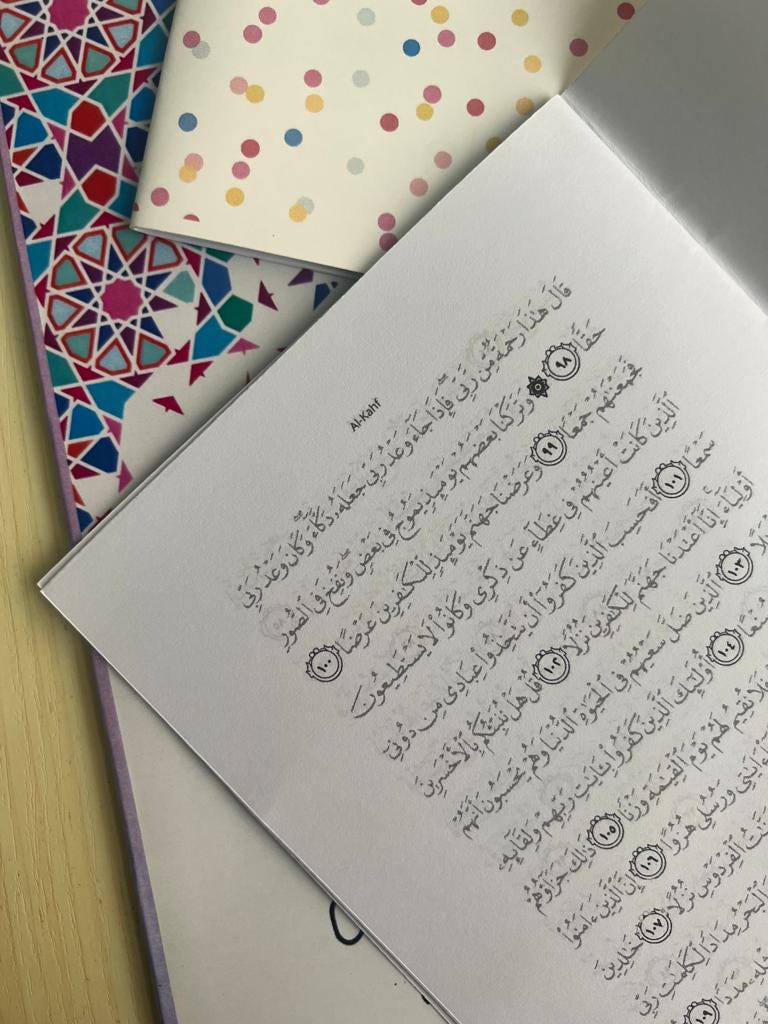 Al-Kahf
قَالَ هَٰذَا رَحْمَةٌ مِّن رَّبِّي ۖ فَإِذَا جَآءَ وَعْدُ رَبِّي جَعَلَهُۥ دَكَّآءَ ۖ وَكَانَ وَعْدُ رَبِّي
حَقًّا ٩٨ ۞ وَتَرَكْنَا بَعْضَهُمْ يَوْمَئِذٍ يَمُوجُ فِي بَعْضٍ ۖ وَنُفِخَ فِي ٱلصُّورِ
فَجَمَعْنَٰهُمْ جَمْعًا ٩٩ وَعَرَضْنَا جَهَنَّمَ يَوْمَئِذٍ لِّلْكَٰفِرِينَ عَرْضًا ١٠٠
ٱلَّذِينَ كَانَتْ أَعْيُنُهُمْ فِي غِطَآءٍ عَن ذِكْرِي وَكَانُوا۟ لَا يَسْتَطِيعُونَ
سَمْعًا ١٠١ أَفَحَسِبَ ٱلَّذِينَ كَفَرُوٓا۟ أَن يَتَّخِذُوا۟ عِبَادِي مِن دُونِيٓ
أَوْلِيَآءَ ۚ إِنَّآ أَعْتَدْنَا جَهَنَّمَ لِلْكَٰفِرِينَ نُزُلًا ١٠٢ قُلْ هَلْ نُنَبِّئُكُم بِٱلْأَخْسَرِينَ
١٠٣ ٱلَّذِينَ ضَلَّ سَعْيُهُمْ فِي ٱلْحَيَوٰةِ ٱلدُّنْيَا وَهُمْ يَحْسَبُونَ أَنَّهُمْ
صُنْعًا ١٠٤ أُو۟لَٰٓئِكَ ٱلَّذِينَ كَفَرُوا۟ بِـَٔايَٰتِ رَبِّهِمْ وَلِقَآئِهِۦ
فَلَا نُقِيمُ لَهُمْ يَوْمَ ٱلْقِيَٰمَةِ وَزْنًا ١٠٥ ذَٰلِكَ جَزَآؤُهُمْ
ءَايَٰتِي وَرُسُلِي هُزُوًا ١٠٦ إِنَّ ٱلَّذِينَ ءَامَنُوا۟
ٱلْفِرْدَوْسِ نُزُلًا ١٠٧ خَٰلِدِينَ
ٱلْبَحْرُ مِدَادًا لِّكَلِمَٰتِ رَبِّي
مَدَدًا ١٠٩